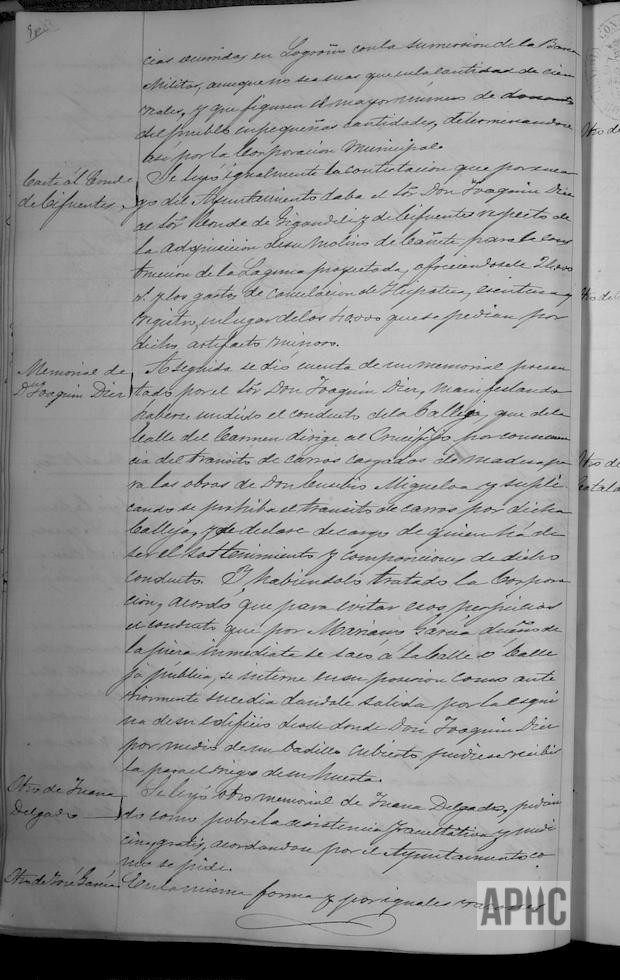 cias ocurridas en Logroño con la sumersion de la Barca
Militar, aunque no sea mas que en la cantidad de cien
reales, y que figuren el mayor número de donantes
del pueblo en pequeñas cantidades, determinandose
así por la Corporacion Municipal.
Carta al Conde
de Cifuentes
Se leyó igualmente la contestacion que por encar
go del Ayuntamiento daba el Sor Don Joaquin Dier
al Sor Conde de Gigandeli y de Cifuentes respecto de
la adquisicion de su Molino de Cañete para la cons
truccion de la Laguna proyectada, ofreciendosele 24,000
r. y los gastos de cancelacion de Hipoteca, escritura y
registro, en lugar de los 40,000 que se pedian por
dicho artefacto minoro.
Memorial de
Dn Joaquin Dier
A seguida se dió cuenta de un memorial presen
tado por el Sor Don Joaquin Dier, manifestando
haberse undido el conducto de la Calleja, que de la
Calle del Carmen dirige al Crucifijo por consecuen
cia del transito de carros cargados de madera pa
ra las obras de Don Eusebio Migueloa y supli
cando se prohiba el transito de carros por dicha
Calleja, y se declare de cargo de quien há de
ser el sostenimiento y composiciones de dicho
conducto. Y habiéndolo tratado la Corpora
cion, acordó que para evitar esos perjuicios
el conducto que por Mariano Garcia dueño de
la pieza inmediata se sacó á la Calle o Calle
ja pública, se interne en su posesion como ante
riormente sucedia dandole salida por la esqui
na de su edificio desde donde Don Joaquin Dier
por medio de un badillo cubierto pudiese recibir
la para el riego de su huerta.
Otro de Juana
Delgado
Se leyó otro memorial de Juana Delgado, pidien
do como pobre la asistencia facultativa y medi
cina gratis, acordandose por el Ayuntamiento co
mo se pide.
Otro de José Garcia
En la misma forma y por iguales razones
APHC
Otro de